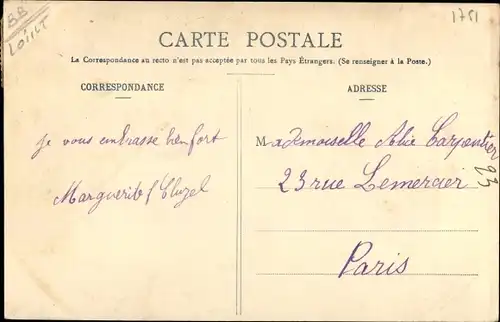 BB
LOIRET
1751
CARTE POSTALE
La Correspondance au recto n'est pas acceptée par tous les Pays Étrangers. (Se renseigner à la Poste.)
CORRESPONDANCE
je vous embrasse bien fort
Marguerite Cluzel
ADRESSE
Mademoiselle Alie Carpentier
23 rue Lemercier
23
Paris